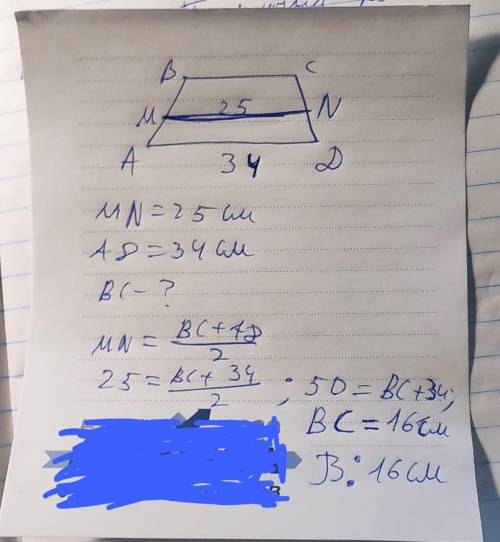 B C
M 25 N
A 34 D
MN = 25 см
AD = 34 см
BC - ?
MN = BC + AD / 2
25 = BC + 34 / 2 ; 50 = BC + 34;
BC = 16 см
В: 16 см